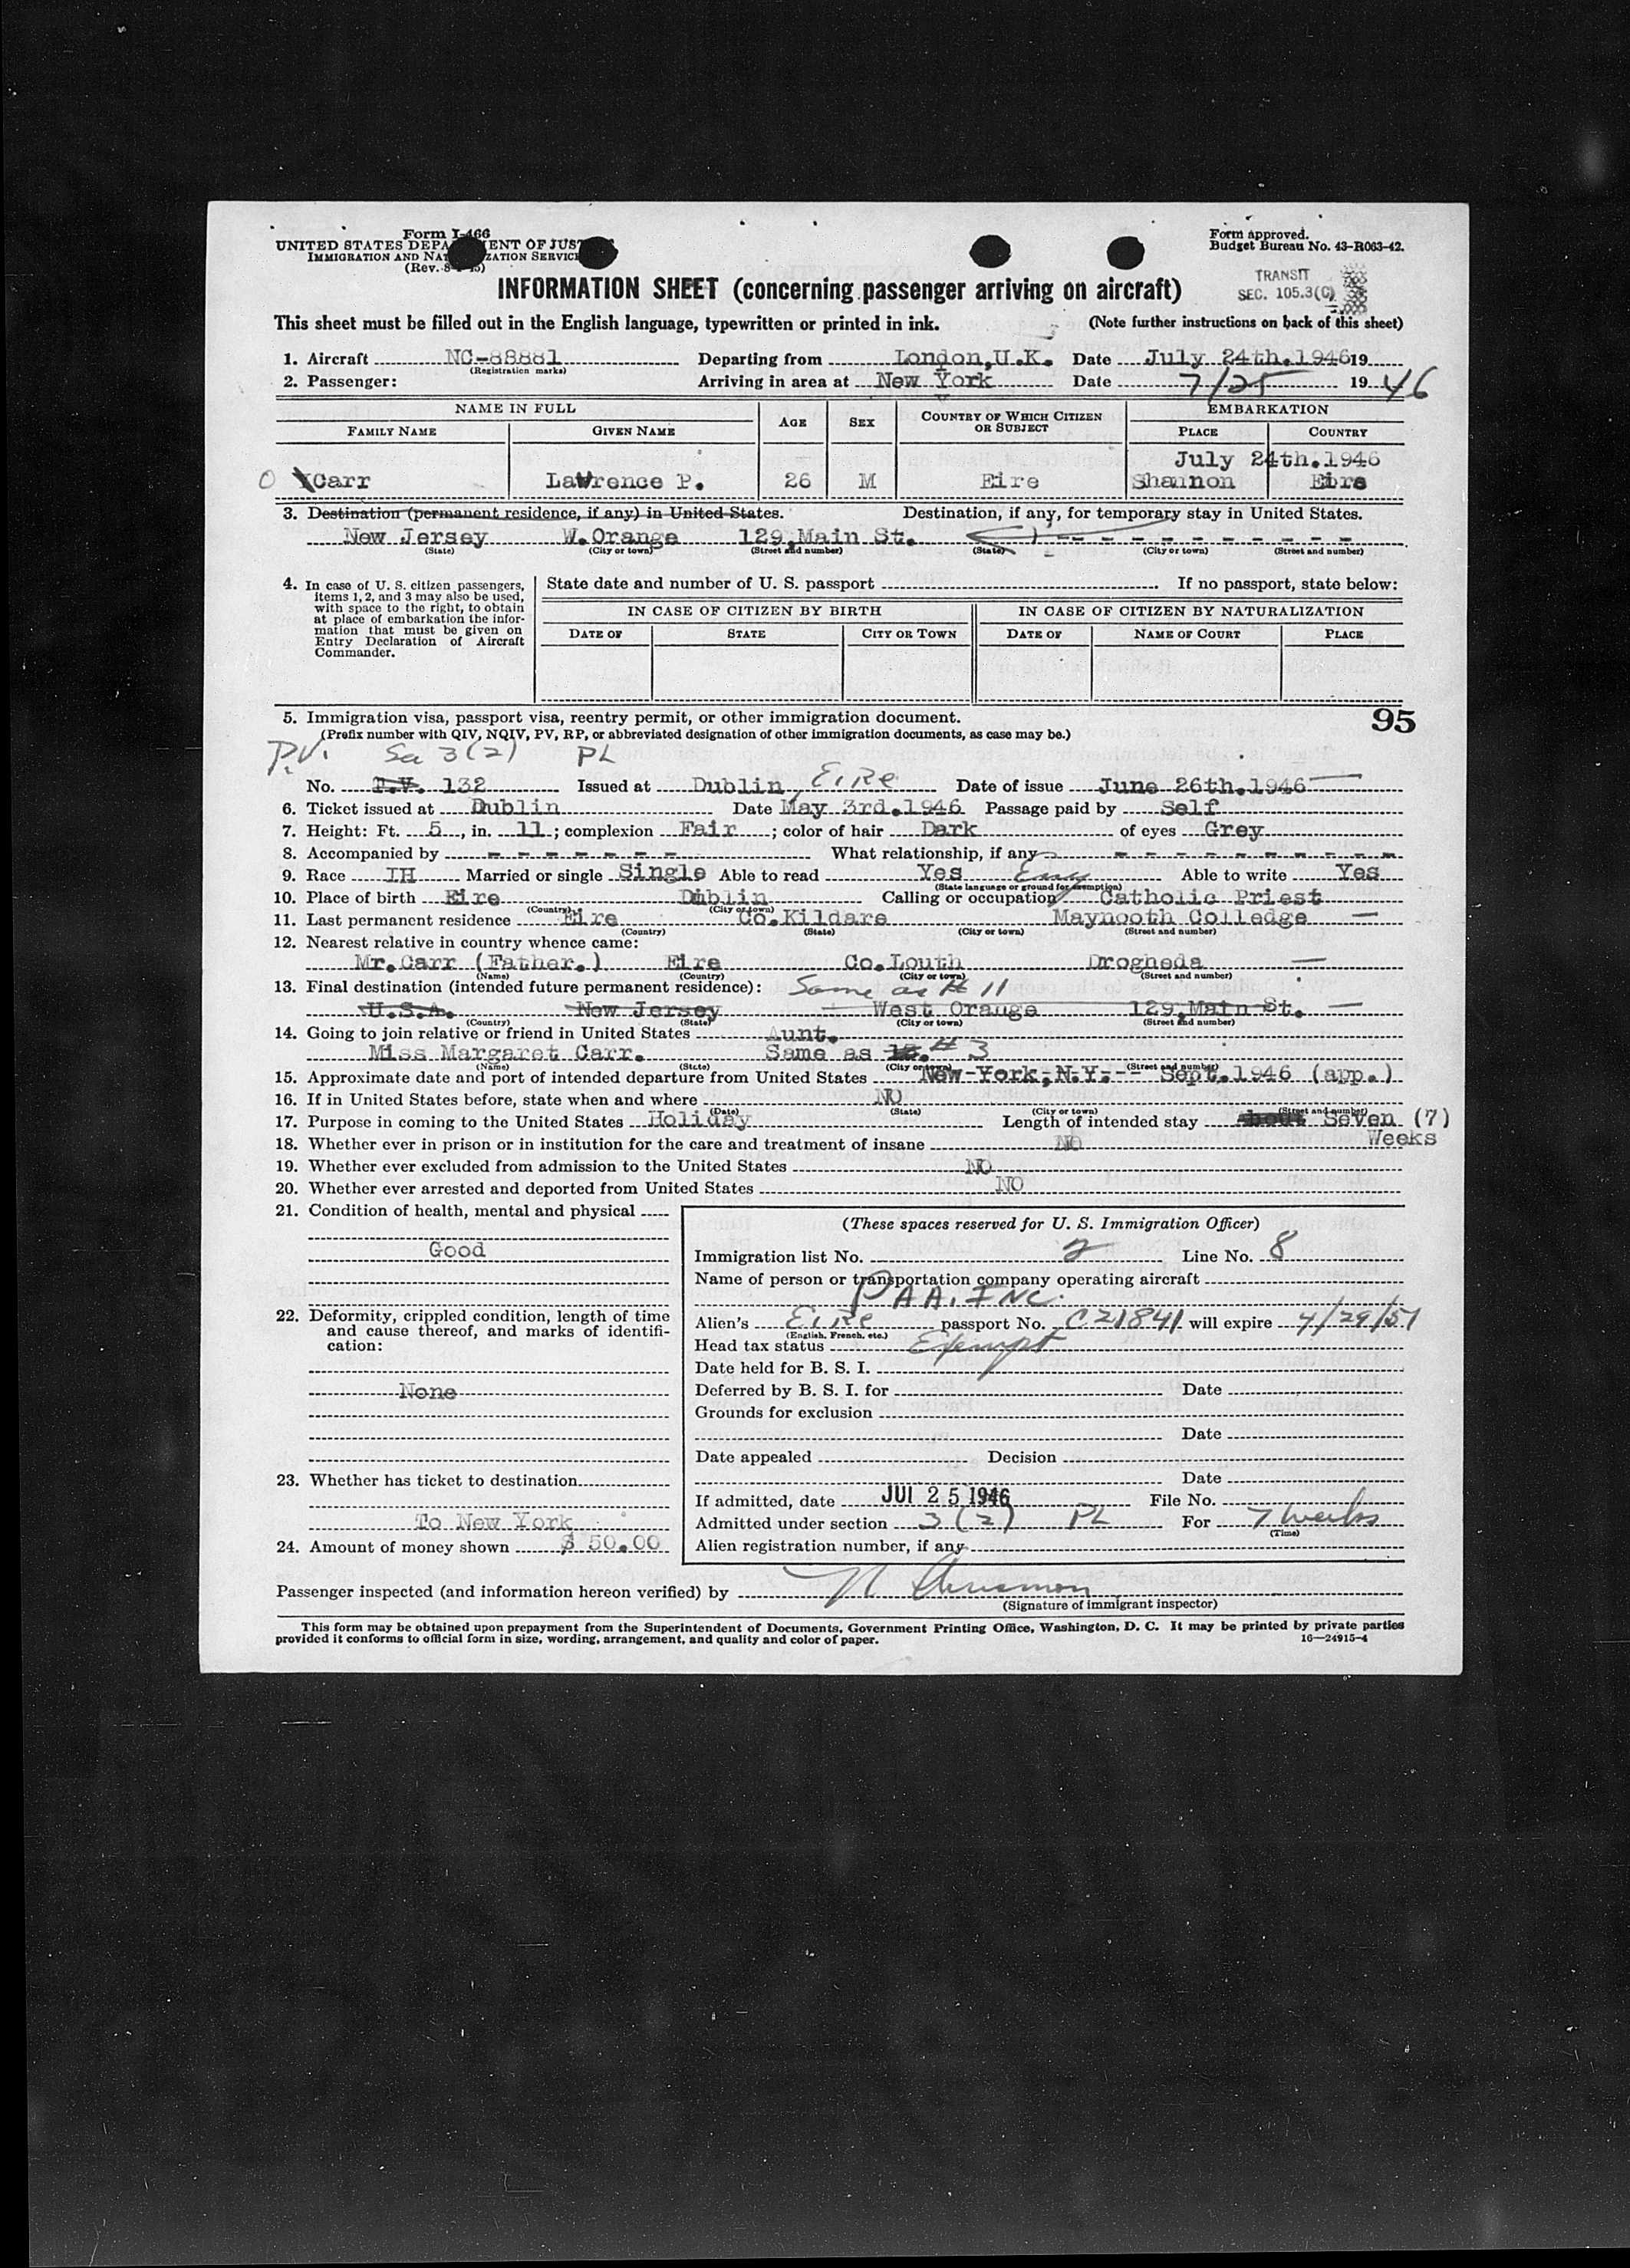 Form I-466
UNITED STATES DEPA ENT OF JUS
IMMIGRATION AND NAT ZATION SERVICE
(Rev.
Form approved.
Budget Bureau No. 43-R063-42.
TRANSIT
SEC. 105.3(C)
INFORMATION SHEET (concerning passenger arriving on aircraft)
This sheet must be filled out in the English language, typewritten or printed in ink. (Note further instructions on back of this sheet)
1. Aircraft NC-88881 Departing from London,U.K. Date July 24th.1946 19
(Registration marks)
2. Passenger: Arriving in area at New York Date 7/25 19 46
NAME IN FULL AGE SEX COUNTRY OF WHICH CITIZEN OR SUBJECT EMBARKATION
FAMILY NAME GIVEN NAME PLACE COUNTRY
July 24th.1946
O Carr Lawrence P. 26 M Eire Shannon Eire
3. Destination (permanent residence, if any) in United States. Destination, if any, for temporary stay in United States.
New Jersey W.Orange 129,Main St. - - - - - - - - - -
(State) (City or town) (Street and number) (State) (City or town) (Street and number)
4. In case of U. S. citizen passengers, items 1, 2, and 3 may also be used, with space to the right, to obtain at place of embarkation the information that must be given on Entry Declaration of Aircraft Commander.
State date and number of U. S. passport If no passport, state below:
IN CASE OF CITIZEN BY BIRTH IN CASE OF CITIZEN BY NATURALIZATION
DATE OF STATE CITY OR TOWN DATE OF NAME OF COURT PLACE
5. Immigration visa, passport visa, reentry permit, or other immigration document. 95
(Prefix number with QIV, NQIV, PV, RP, or abbreviated designation of other immigration documents, as case may be.)
P.V. Sec 3(2) PL
No. P.V. 132 Issued at Dublin, Eire Date of issue June 26th.1946
6. Ticket issued at Dublin Date May 3rd.1946 Passage paid by Self
7. Height: Ft. 5, in. 11; complexion Fair; color of hair Dark of eyes Grey
8. Accompanied by - - - - - - - What relationship, if any - - - - - - - - - -
9. Race IH Married or single Single Able to read Yes Eng Able to write Yes
(State language or ground for exemption)
10. Place of birth Eire Dublin Calling or occupation Catholic Priest
(Country) (City or town)
11. Last permanent residence Eire Co.Kildare Maynooth Colledge
(Country) (State) (City or town) (Street and number)
12. Nearest relative in country whence came:
Mr.Carr (Father.) Eire Co.Louth Drogheda
(Name) (Country) (City or town) (Street and number)
13. Final destination (intended future permanent residence): Same as # 11
U.S.A. New Jersey West Orange 129,Main St.
(Country) (State) (City or town) (Street and number)
14. Going to join relative or friend in United States Aunt.
Miss Margaret Carr. Same as 13. # 3
(Name) (State) (City or town) (Street and number)
15. Approximate date and port of intended departure from United States New York,N.Y.-- Sept.1946 (app.)
16. If in United States before, state when and where NO
(Date) (State) (City or town) (Street and number)
17. Purpose in coming to the United States Holiday Length of intended stay About Seven (7)
Weeks
18. Whether ever in prison or in institution for the care and treatment of insane NO
19. Whether ever excluded from admission to the United States NO
20. Whether ever arrested and deported from United States NO
21. Condition of health, mental and physical
Good
22. Deformity, crippled condition, length of time and cause thereof, and marks of identification:
None
23. Whether has ticket to destination
To New York
24. Amount of money shown $ 50.00
(These spaces reserved for U. S. Immigration Officer)
Immigration list No. 2 Line No. 8
Name of person or transportation company operating aircraft
PAA. INC.
Alien's Eire passport No. C21841 will expire 4/29/51
(English, French, etc.)
Head tax status Exempt
Date held for B. S. I.
Deferred by B. S. I. for Date
Grounds for exclusion
Date
Date appealed Decision
Date
If admitted, date JUL 25 1946 File No.
Admitted under section 3(2) PL For 7 weeks
(Time)
Alien registration number, if any
Passenger inspected (and information hereon verified) by
(Signature of immigrant inspector)
This form may be obtained upon prepayment from the Superintendent of Documents, Government Printing Office, Washington, D. C. It may be printed by private parties
provided it conforms to official form in size, wording, arrangement, and quality and color of paper. 16—24915-4